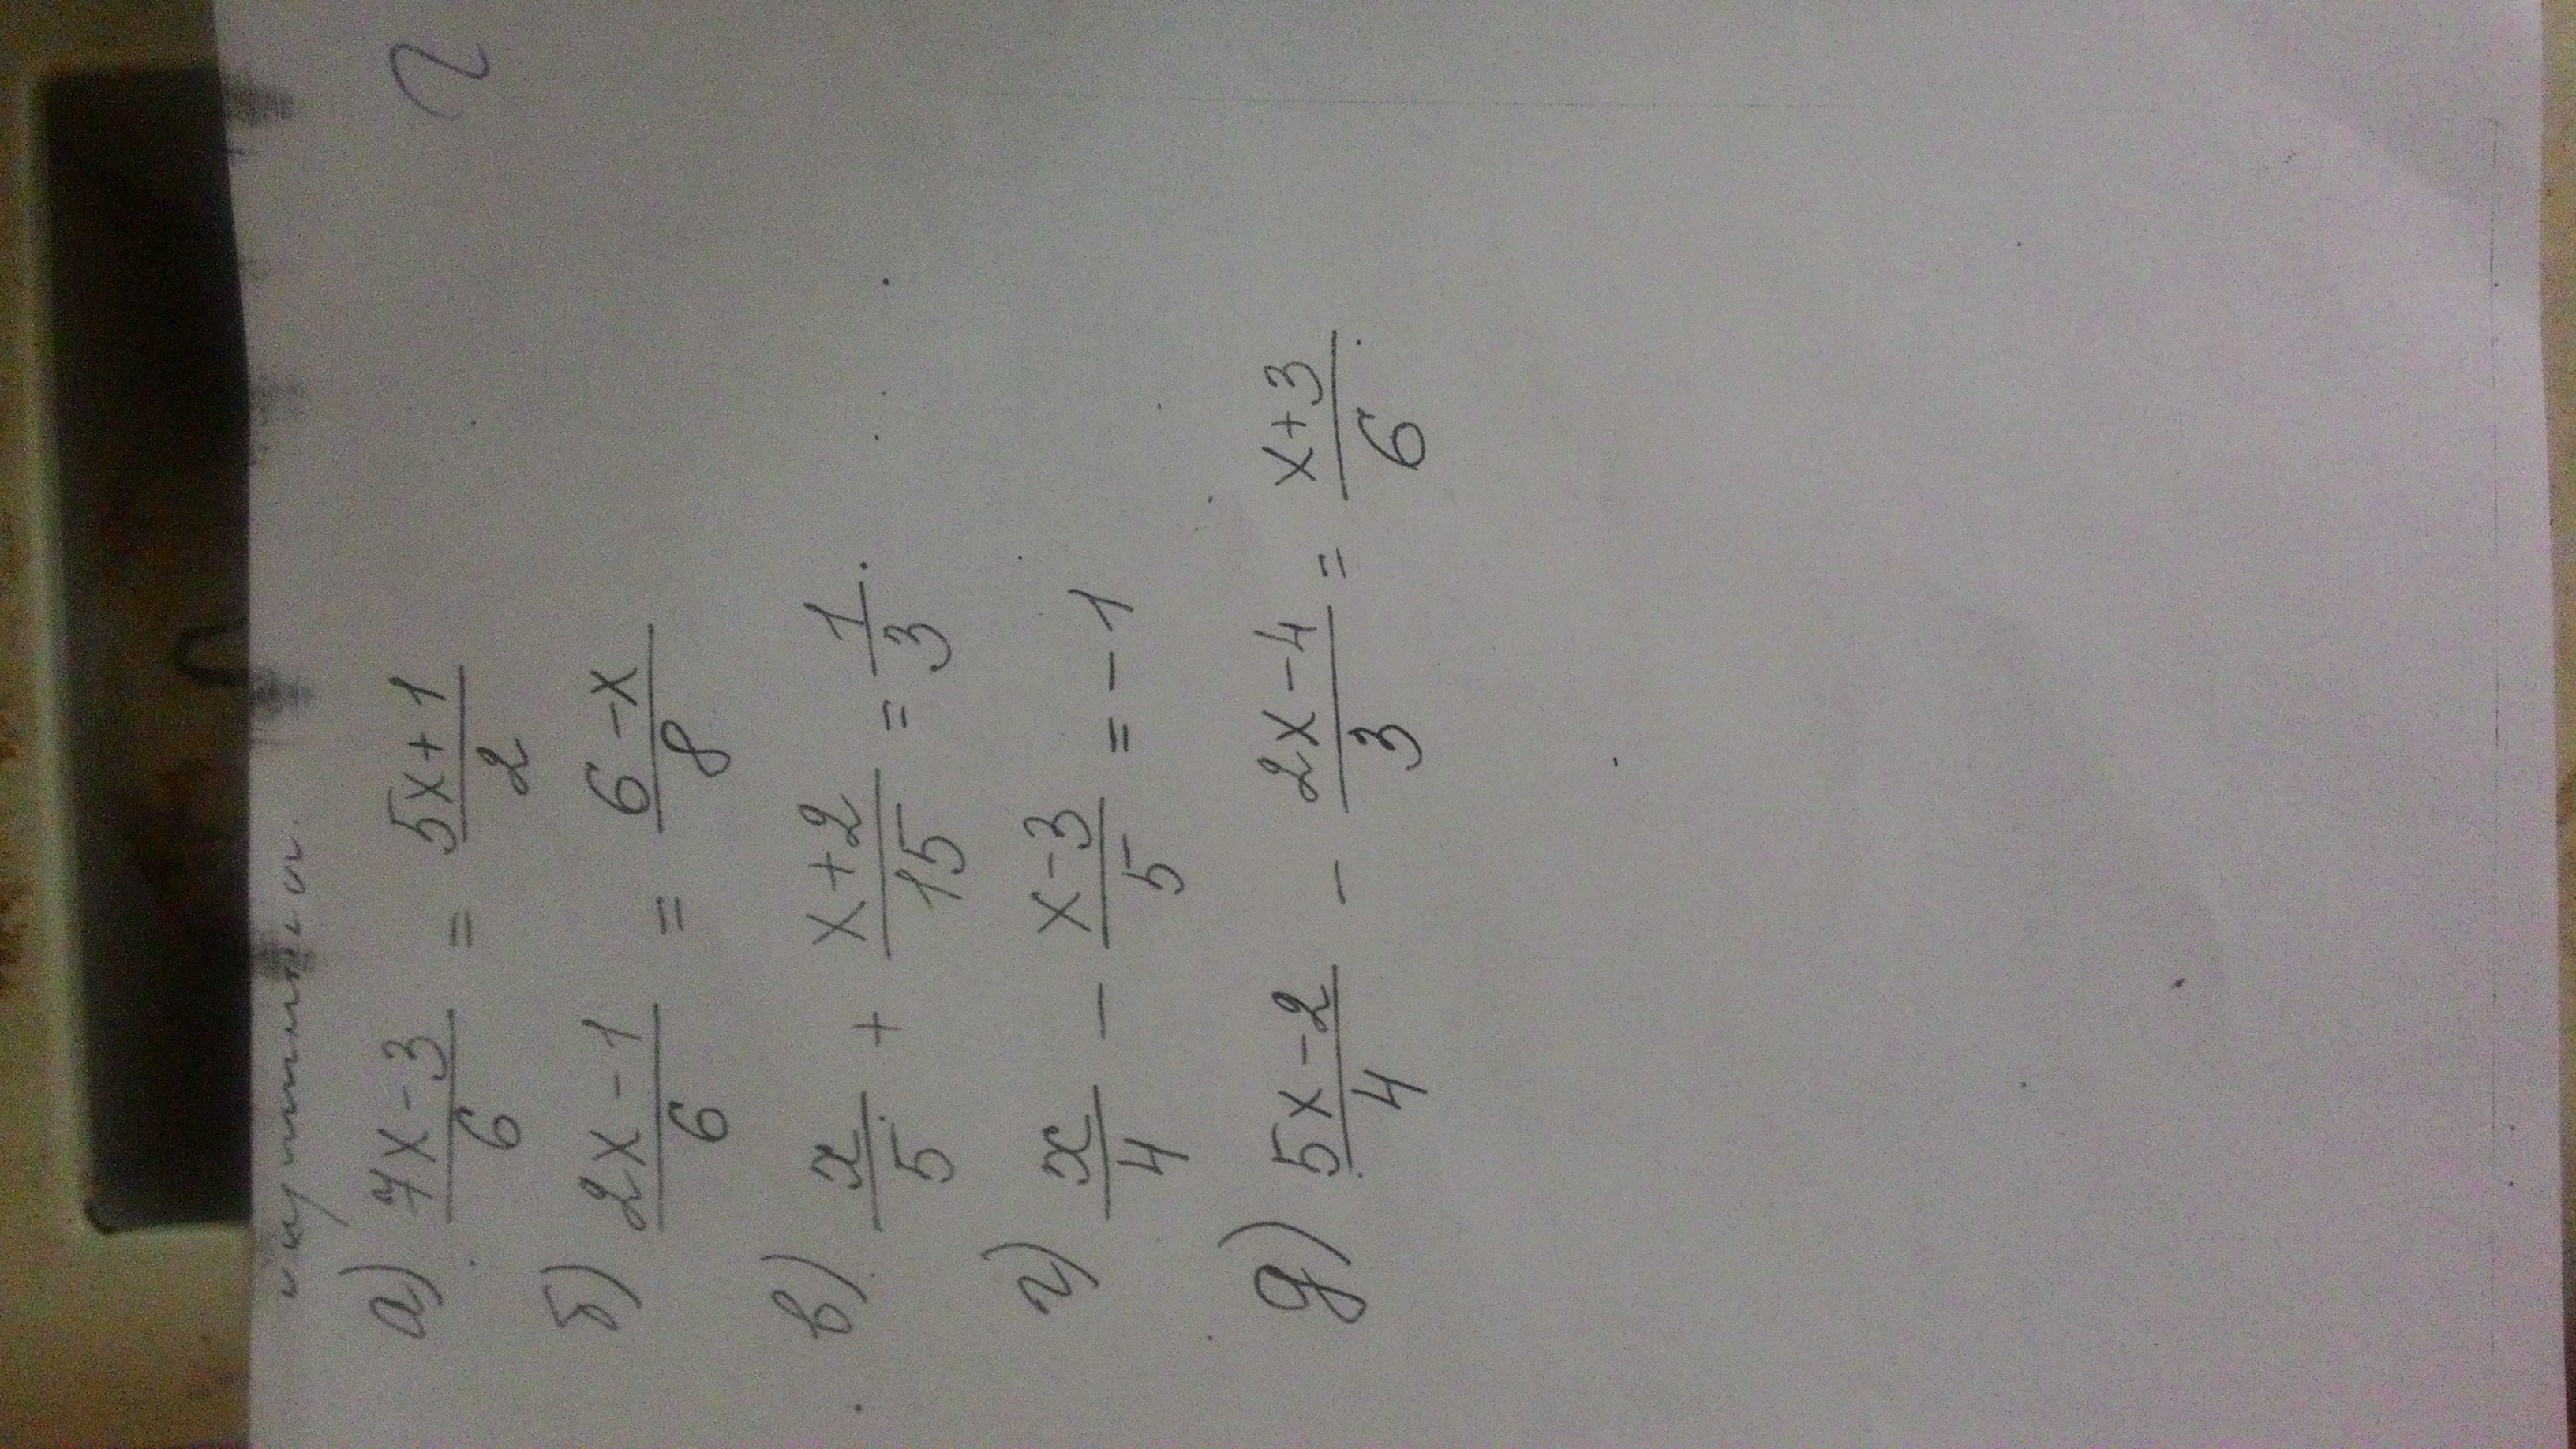 а) (7x-3)/6 = (5x+1)/2
б) (2x-1)/6 = (6-x)/8
в) x/5 + (x+2)/15 = 1/3.
г) x/4 - (x-3)/5 = -1
д) (5x-2)/4 - (2x-4)/3 = (x+3)/6